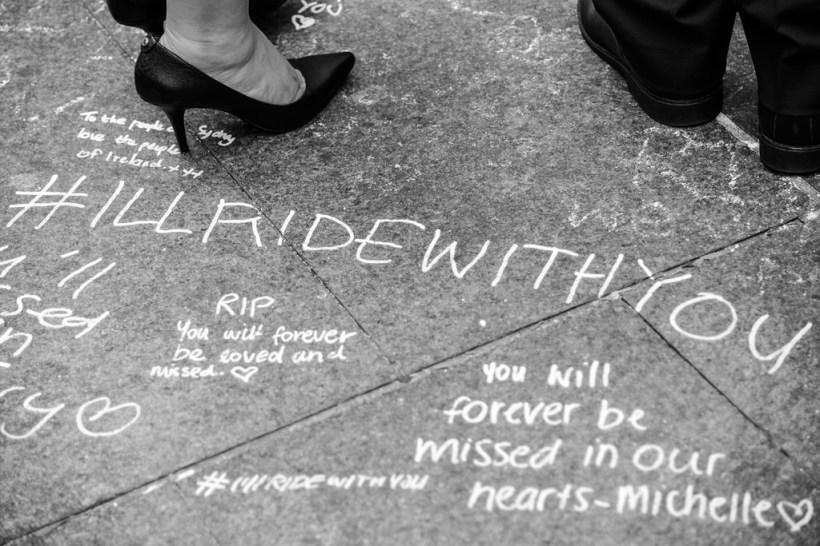 YOU
To the people Sydney
love the people
of Ireland. xxx
#ILLRIDEWITHYOU
RIP
You will forever
be loved and
missed. ♡
You will
forever be
missed in our
hearts-Michelle♡
#illRIDEWITHYOU